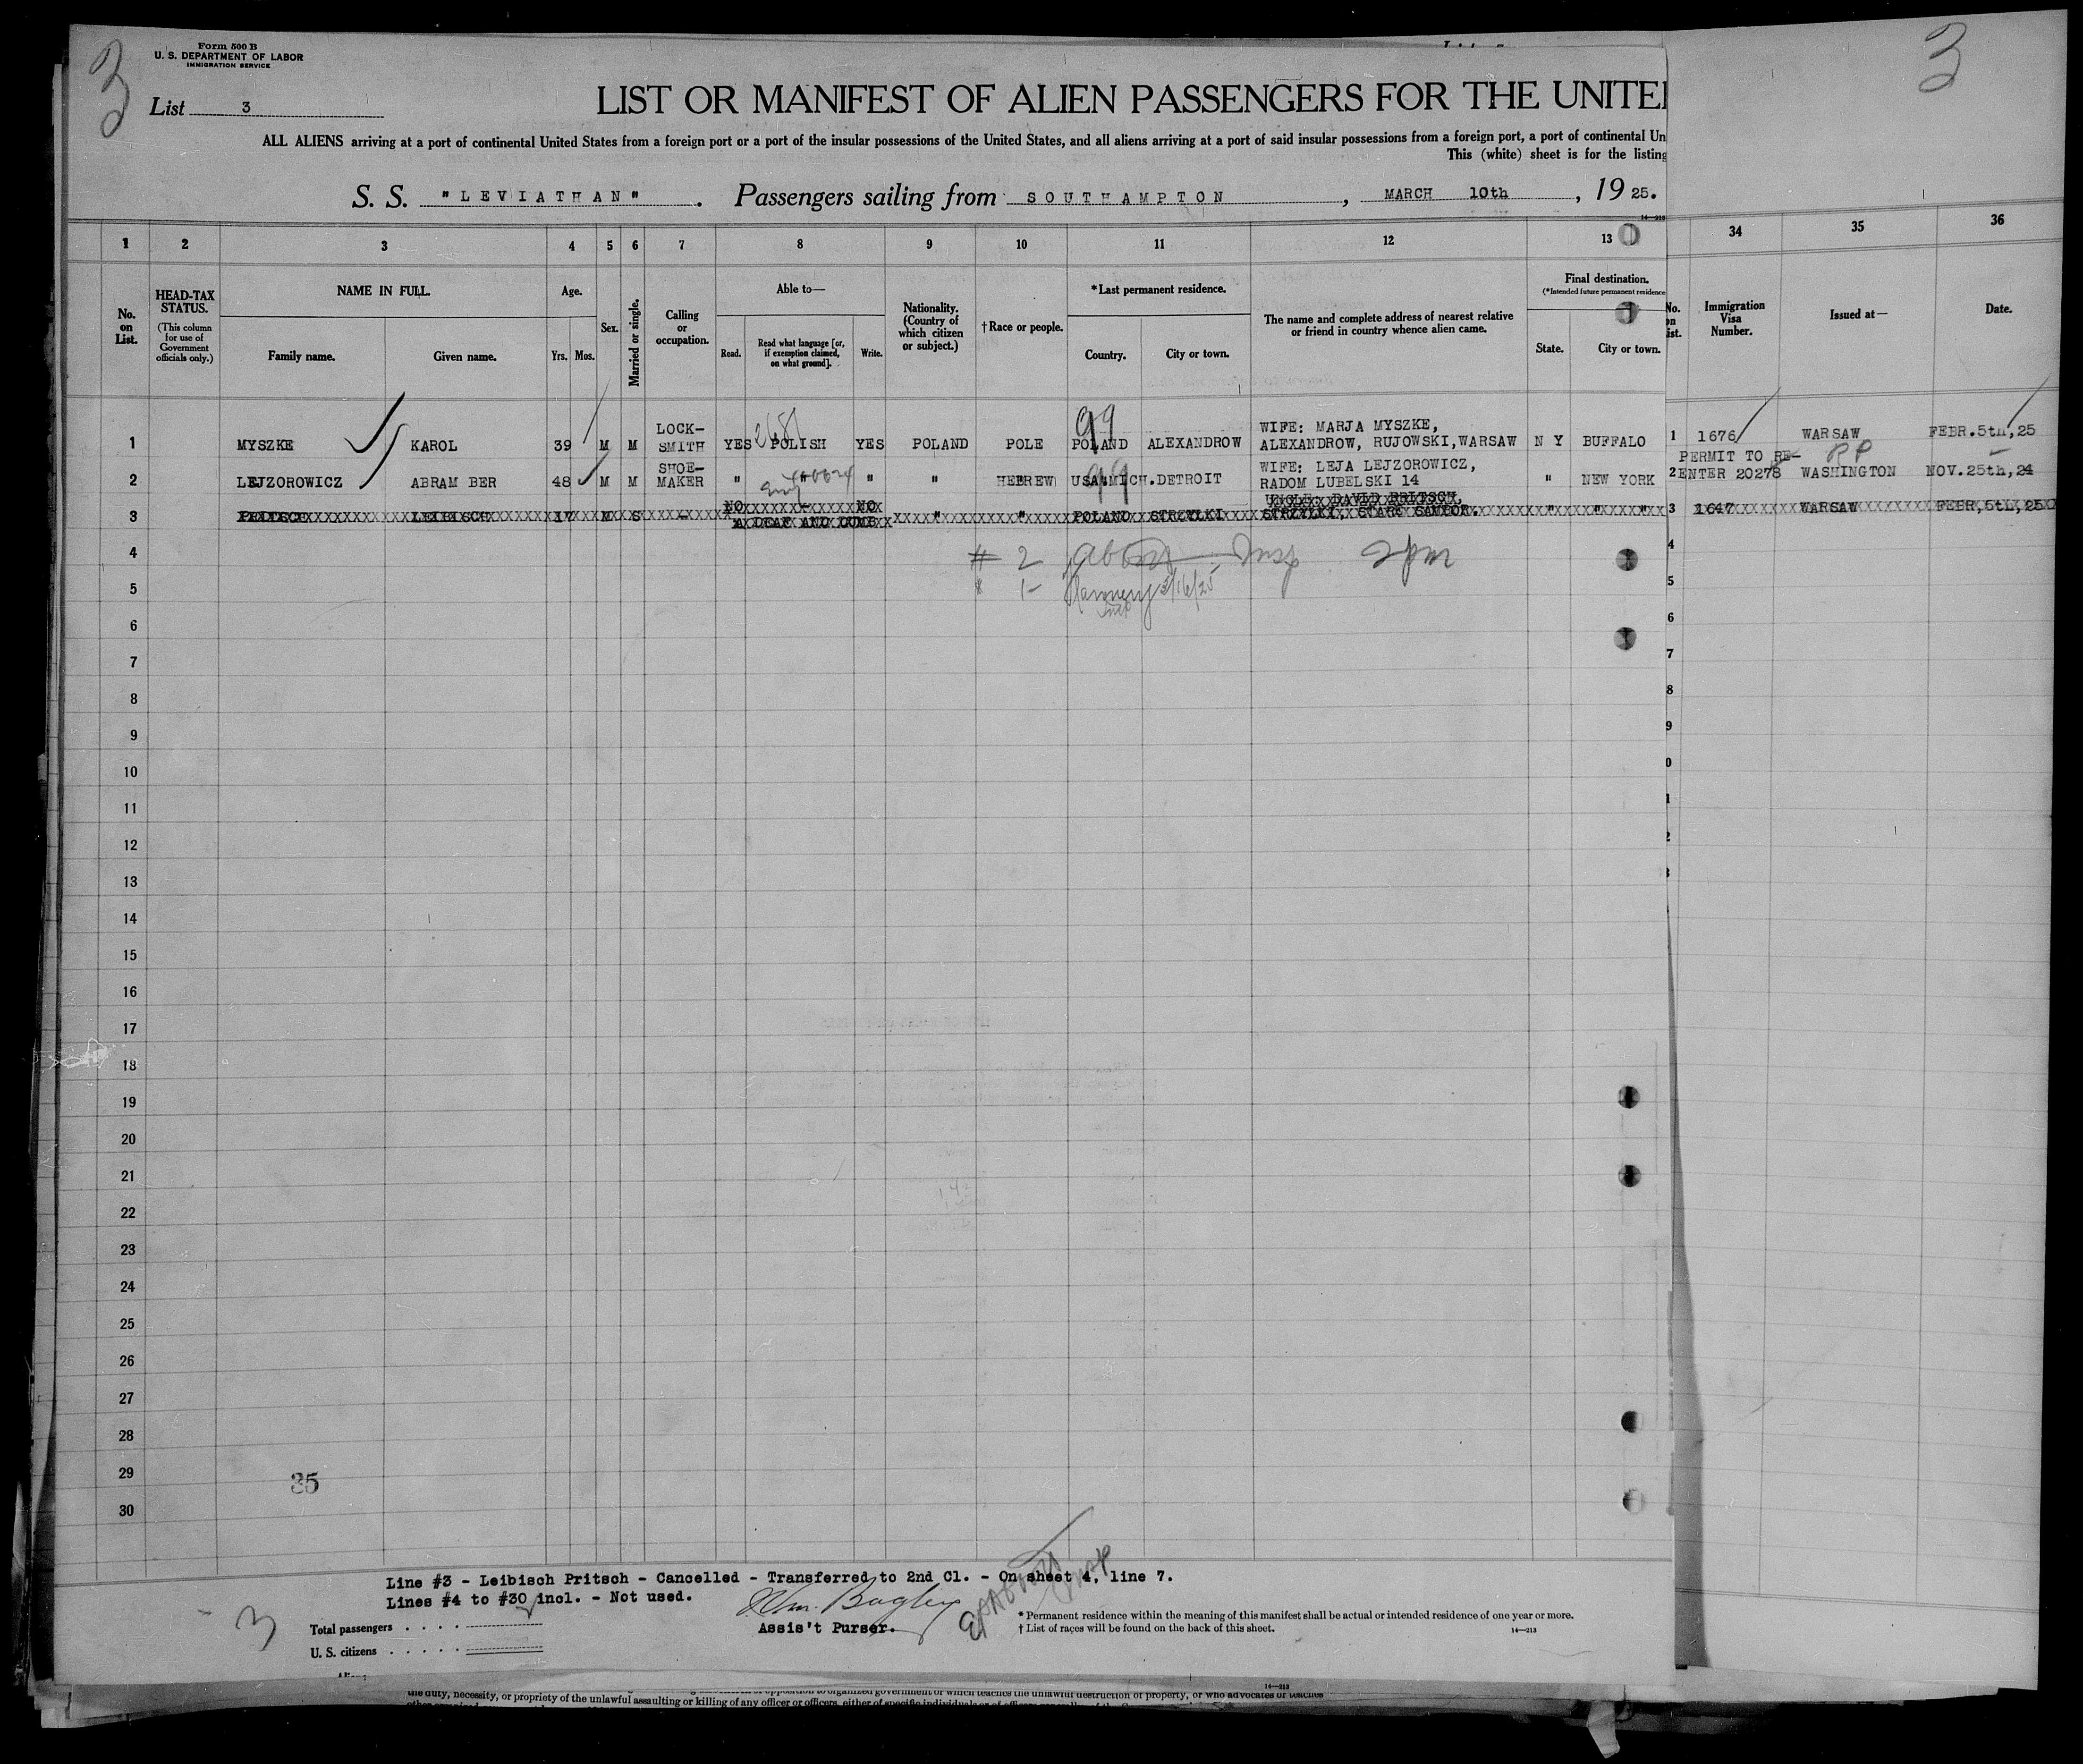 3
Form 500 B
U. S. DEPARTMENT OF LABOR
IMMIGRATION SERVICE
3
List 3
LIST OR MANIFEST OF ALIEN PASSENGERS FOR THE UNITE
ALL ALIENS arriving at a port of continental United States from a foreign port or a port of the insular possessions of the United States, and all aliens arriving at a port of said insular possessions from a foreign port, a port of continental Un
This (white) sheet is for the listing
S. S. "LEVIATHAN". Passengers sailing from SOUTHAMPTON, MARCH 10th, 1925.
1 2 3 4 5 6 7 8 9 10 11 12 13 34 35 36
No. on List.
HEAD-TAX STATUS.
(This column for use of Government officials only.)
NAME IN FULL.
Family name. Given name.
Age.
Yrs. Mos.
Sex.
Married or single.
Calling or occupation.
Able to—
Read. Read what language [or, if exemption claimed, on what ground]. Write.
Nationality. (Country of which citizen or subject.)
†Race or people.
*Last permanent residence.
Country. City or town.
The name and complete address of nearest relative or friend in country whence alien came.
Final destination.
(*Intended future permanent residence
State. City or town.
No. on ist.
Immigration Visa Number.
Issued at—
Date.
1 MYSZKE KAROL 39 M M LOCK-SMITH YES POLISH YES POLAND POLE POLAND ALEXANDROW WIFE: MARJA MYSZKE, ALEXANDROW, RUJOWSKI,WARSAW N Y BUFFALO 1 1676 WARSAW FEBR.5th,25
99
2 LEJZOROWICZ ABRAM BER 48 M M SHOE-MAKER " " " " HEBREW USA.MICH.DETROIT WIFE: LEJA LEJZOROWICZ, RADOM LUBELSKI 14 " NEW YORK 2 PERMIT TO RE-ENTER 20278 WASHINGTON NOV.25th,24
99
RP
3 PRITSCH LEIBISCH 17 M S - NO - NO A DEAF AND DUMB " " POLAND STRZYLKI UNCLE: DAVID PRITSCH, STRZYLKI, STARY SAMBOR. " " " 3 1647 WARSAW FEBR.5th,25
4 # 2 Insp 2pm 4
5 1- 3/16/25 5
6 6
7 7
8 8
9 9
10 0
11 1
12 2
13 3
14
15
16
17
18
19
20
21
22
23
24
25
26
27
28
29
35
30
Line #3 - Leibisch Pritsch - Cancelled - Transferred to 2nd Cl. - On sheet 4, line 7.
Lines #4 to #30 incl. - Not used.
Wm. Bagley
Assis't Purser.
3
Total passengers . . . .
U. S. citizens . . . . .
* Permanent residence within the meaning of this manifest shall be actual or intended residence of one year or more.
† List of races will be found on the back of this sheet.
14—213
14—213
the duty, necessity, or propriety of the unlawful assaulting or killing of any officer or officers, either of specific individuals or of officers